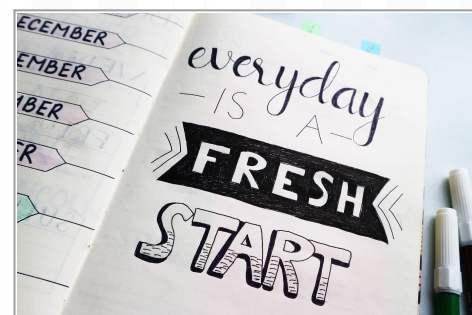 ECEMBER
EMBER
BER
R
everyday
– IS A –
FRESH
START